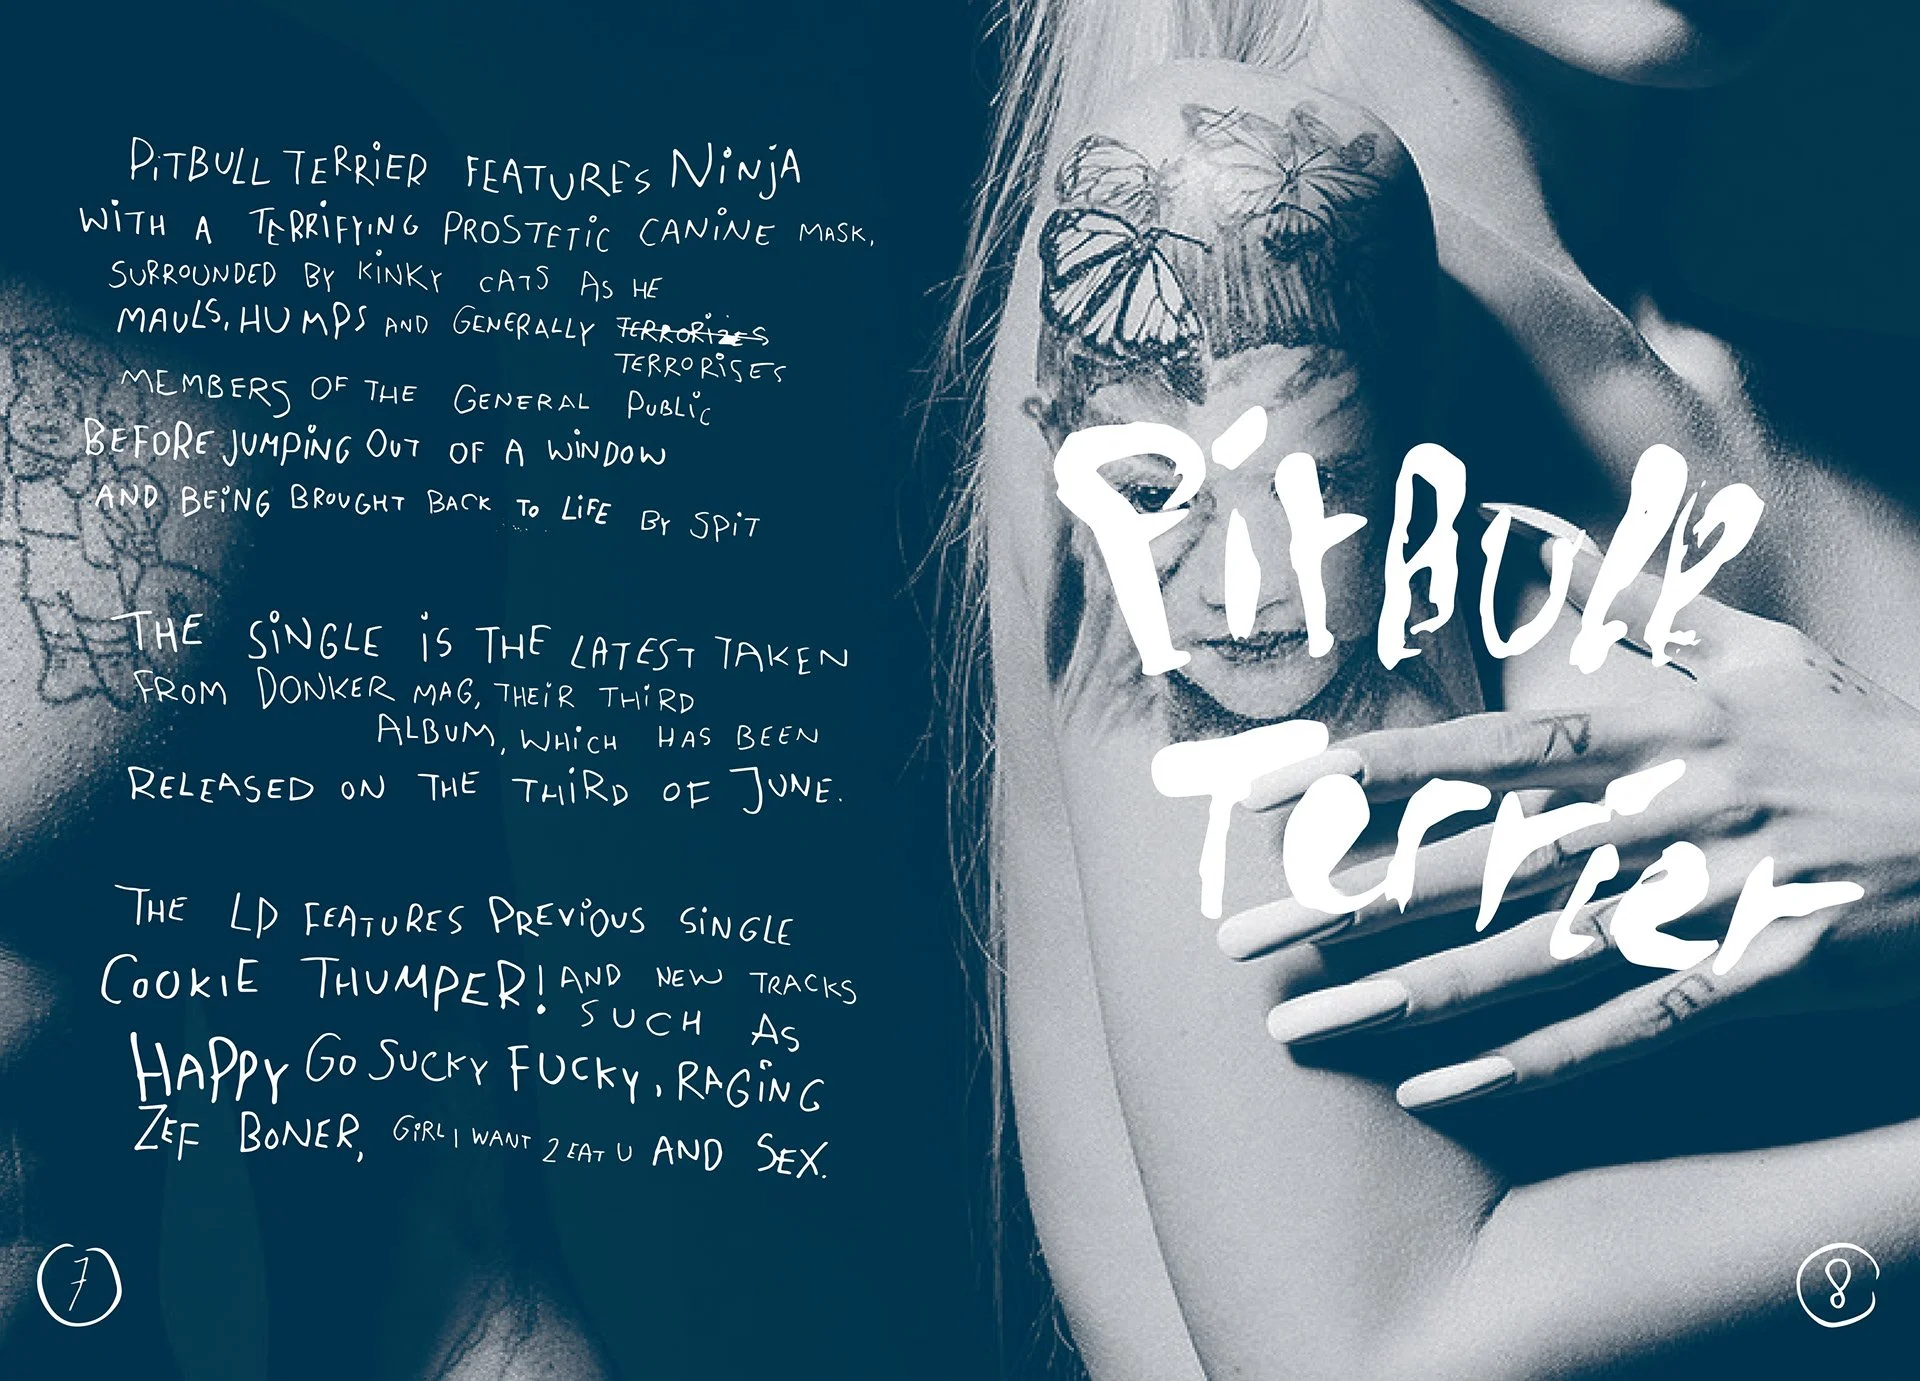 PiTBULL TERRiER FEATURES NiNjA
WiTH A TERRiFYiNG PROSTETiC CANiNE MASK,
SURROUNDED BY KiNKY CATS AS HE
MAULS, HUMPS AND GENERALLY TERRORiZES
TERRORiSES
MEMBERS OF THE GENERAL PUBLiC
BEFORE JUMPiNG OUT OF A WiNDOW
AND BEiNG BROUGHT BACK TO LiFE BY SPiT
THE SiNGLE iS THE LATEST TAKEN
FROM DONKER MAG, THEiR THiRD
ALBUM, WHiCH HAS BEEN
RELEASED ON THE THiRD OF JUNE.
THE LP FEATURES PREViOUS SiNGLE
COOKIE THUMPER! AND NEW TRACKS
SUCH AS
HAPPY GO SUCKY FUCKY, RAGiNG
ZEF BONER, GiRL I WANT 2 EAT U AND SEX.
7
PitBull
Terrier
8